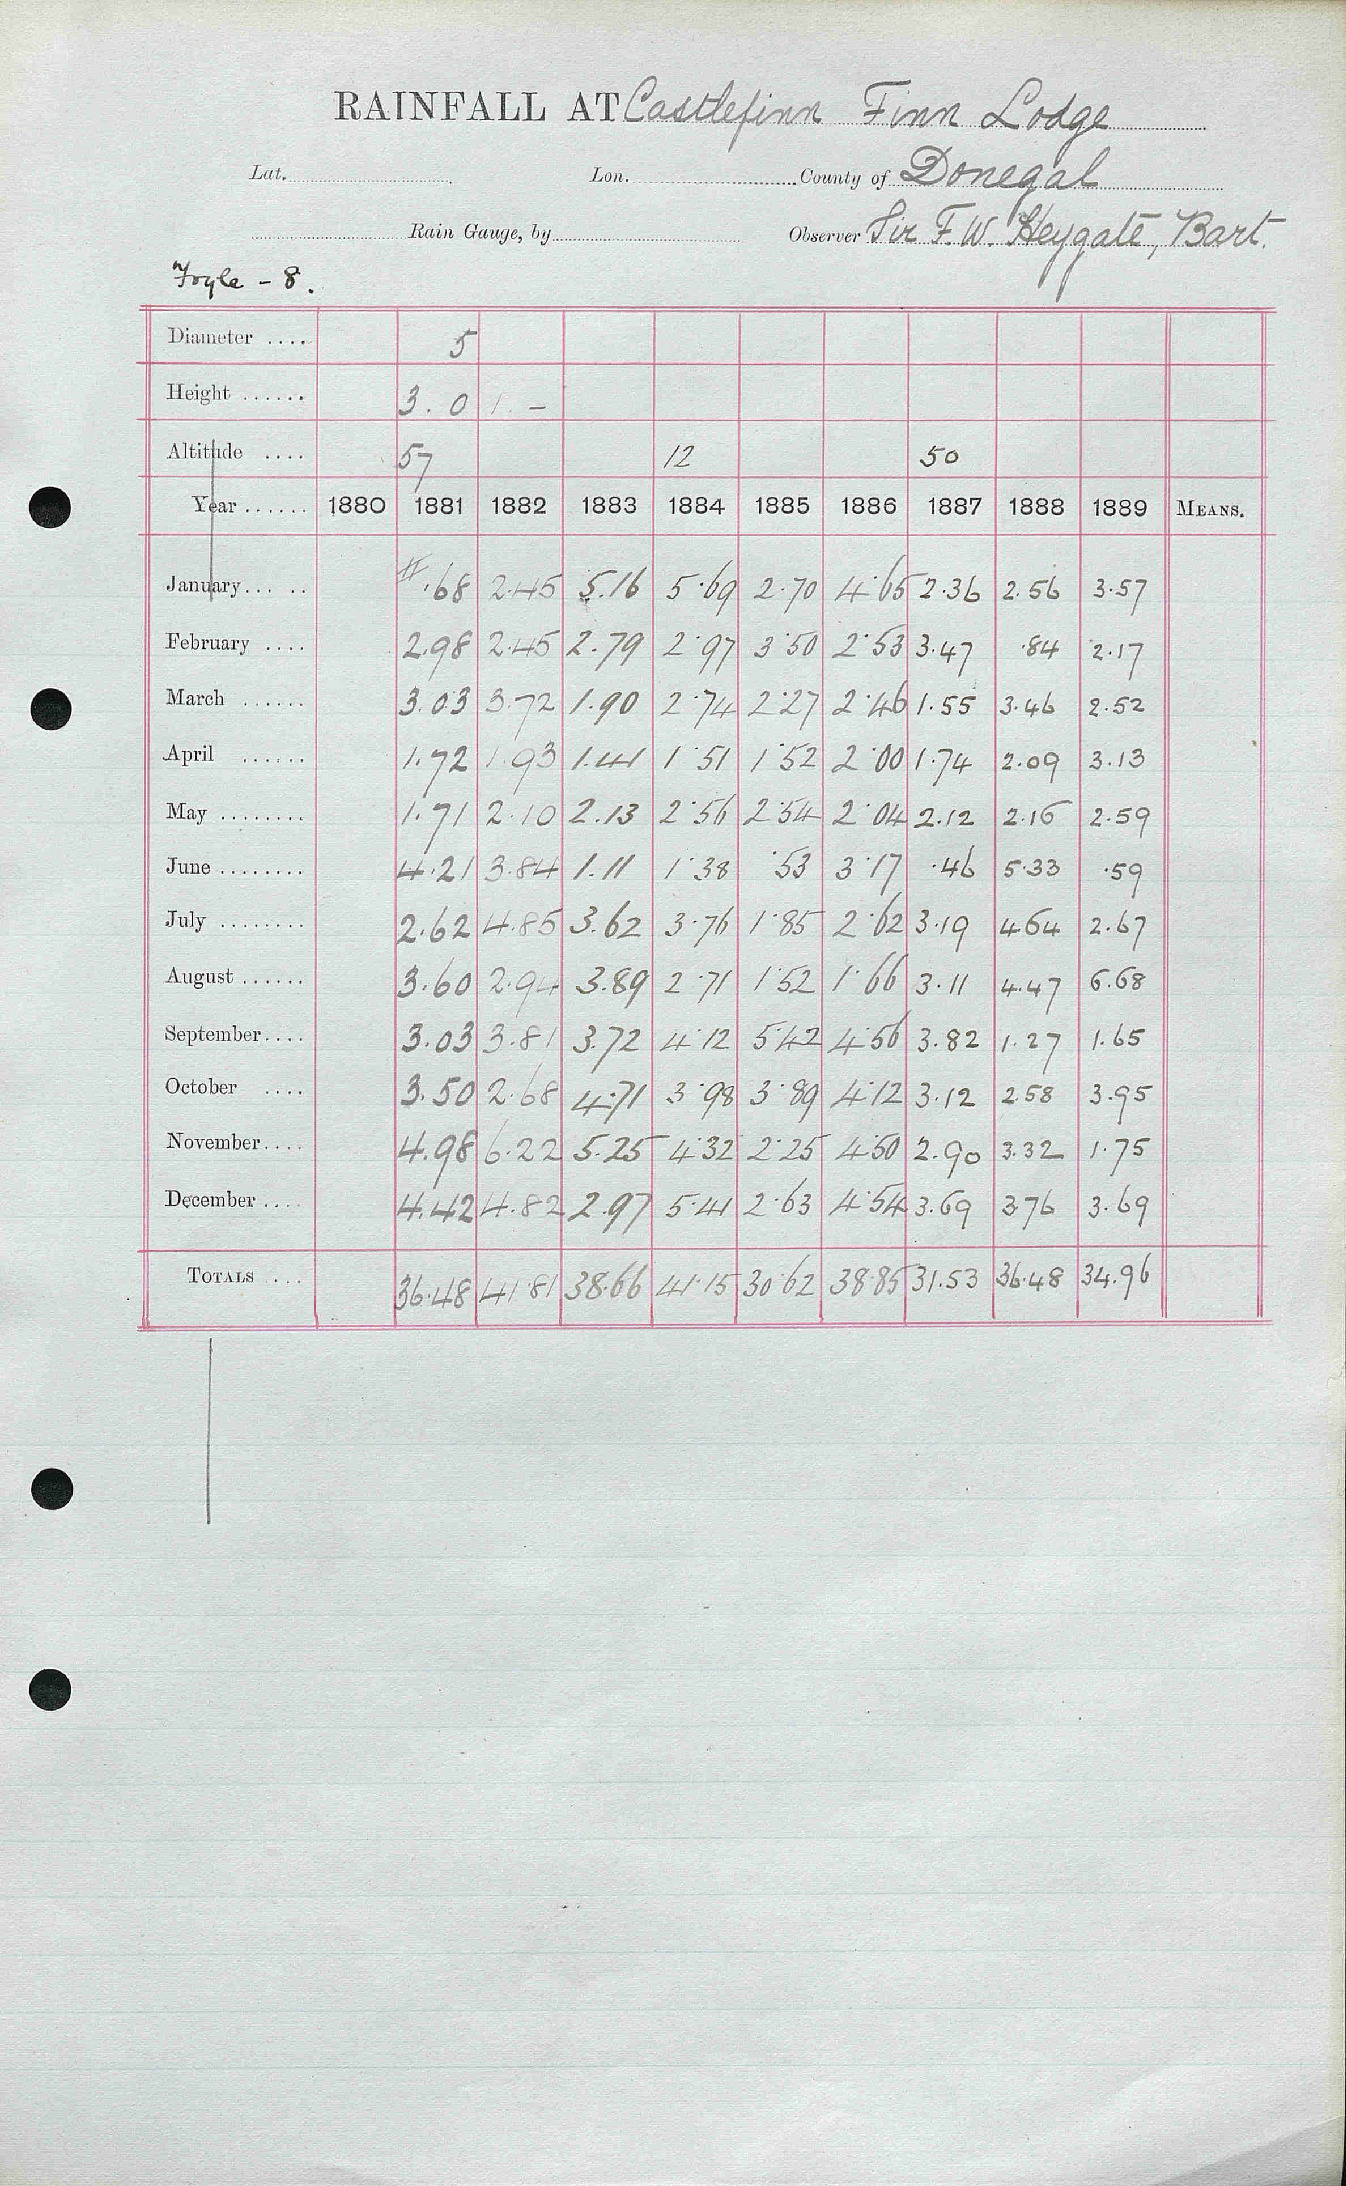 RAINFALL AT Castlefinn Finn Lodge
Lat. Lon. County of Donegal
Rain Gauge, by Observer Sir F. W. Heygate, Bart.
Foyle - 8.
Diameter .... 5
Height ...... 3.0 1. -
Altitude .... 57 12 50
Year ...... 1880 1881 1882 1883 1884 1885 1886 1887 1888 1889 MEANS.
January... .. #.68 2.45 5.16 5.69 2.70 4.65 2.36 2.56 3.57
February .... 2.98 2.45 2.79 2.97 3.50 2.53 3.47 .84 2.17
March ...... 3.03 3.72 1.90 2.74 2.27 2.46 1.55 3.46 2.52
April ...... 1.72 1.93 1.41 1.51 1.52 2.00 1.74 2.09 3.13
May ........ 1.71 2.10 2.13 2.56 2.54 2.04 2.12 2.16 2.59
June ........ 4.21 3.84 1.11 1.38 .53 3.17 .46 5.33 .59
July ........ 2.62 4.85 3.62 3.76 1.85 2.62 3.19 4.64 2.67
August ...... 3.60 2.94 3.89 2.71 1.52 1.66 3.11 4.47 6.68
September.... 3.03 3.81 3.72 4.12 5.42 4.56 3.82 1.27 1.65
October .... 3.50 2.68 4.71 3.98 3.89 4.12 3.12 2.58 3.95
November.... 4.98 6.22 5.25 4.32 2.25 4.50 2.90 3.32 1.75
December .... 4.42 4.82 2.97 5.41 2.63 4.54 3.69 3.76 3.69
TOTALS ... 36.48 41.81 38.66 41.15 30.62 38.85 31.53 36.48 34.96